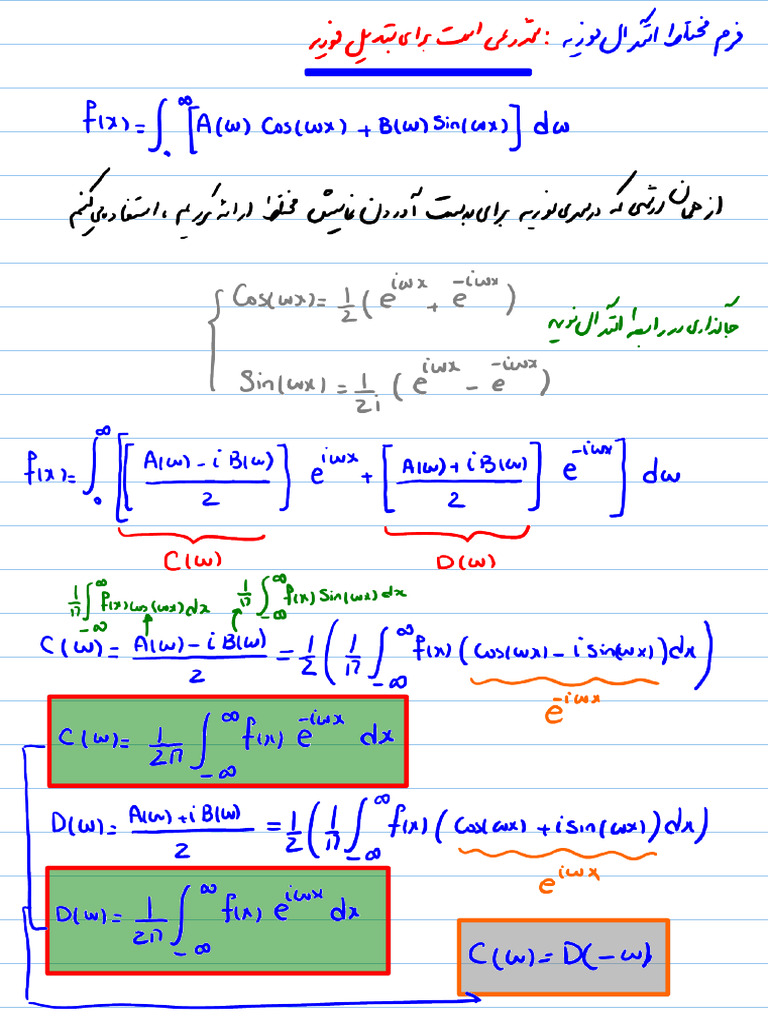 فرم مختلط انتگرال فوریه : مقدمه‌ای است برای تبدیل فوریه
f(x) = ∫₀^∞ [A(ω) Cos(ωx) + B(ω) Sin(ωx)] dω
از همان روشی که در سری فوریه برای بدست آوردن نمایش مختلط ارائه کردیم، استفاده می‌کنیم
Cos(ωx) = 1/2 (e^{iωx} + e^{-iωx})
جایگذاری در رابطه انتگرال فوریه
Sin(ωx) = 1/2i (e^{iωx} - e^{-iωx})
f(x) = ∫₀^∞ [[(A(ω) - i B(ω))/2] e^{iωx} + [(A(ω) + i B(ω))/2] e^{-iωx}] dω
C(ω) D(ω)
1/π ∫_{-∞}^{∞} f(x) cos(ωx) dx 1/π ∫_{-∞}^{∞} f(x) Sin(ωx) dx
C(ω) = (A(ω) - i B(ω))/2 = 1/2 (1/π ∫_{-∞}^{∞} f(x) (Cos(ωx) - i sin(ωx)) dx)
e^{-iωx}
C(ω) = 1/2π ∫_{-∞}^{∞} f(x) e^{-iωx} dx
D(ω) = (A(ω) + i B(ω))/2 = 1/2 (1/π ∫_{-∞}^{∞} f(x) (Cos(ωx) + i sin(ωx)) dx)
e^{iωx}
D(ω) = 1/2π ∫_{-∞}^{∞} f(x) e^{iωx} dx
C(ω) = D(-ω)